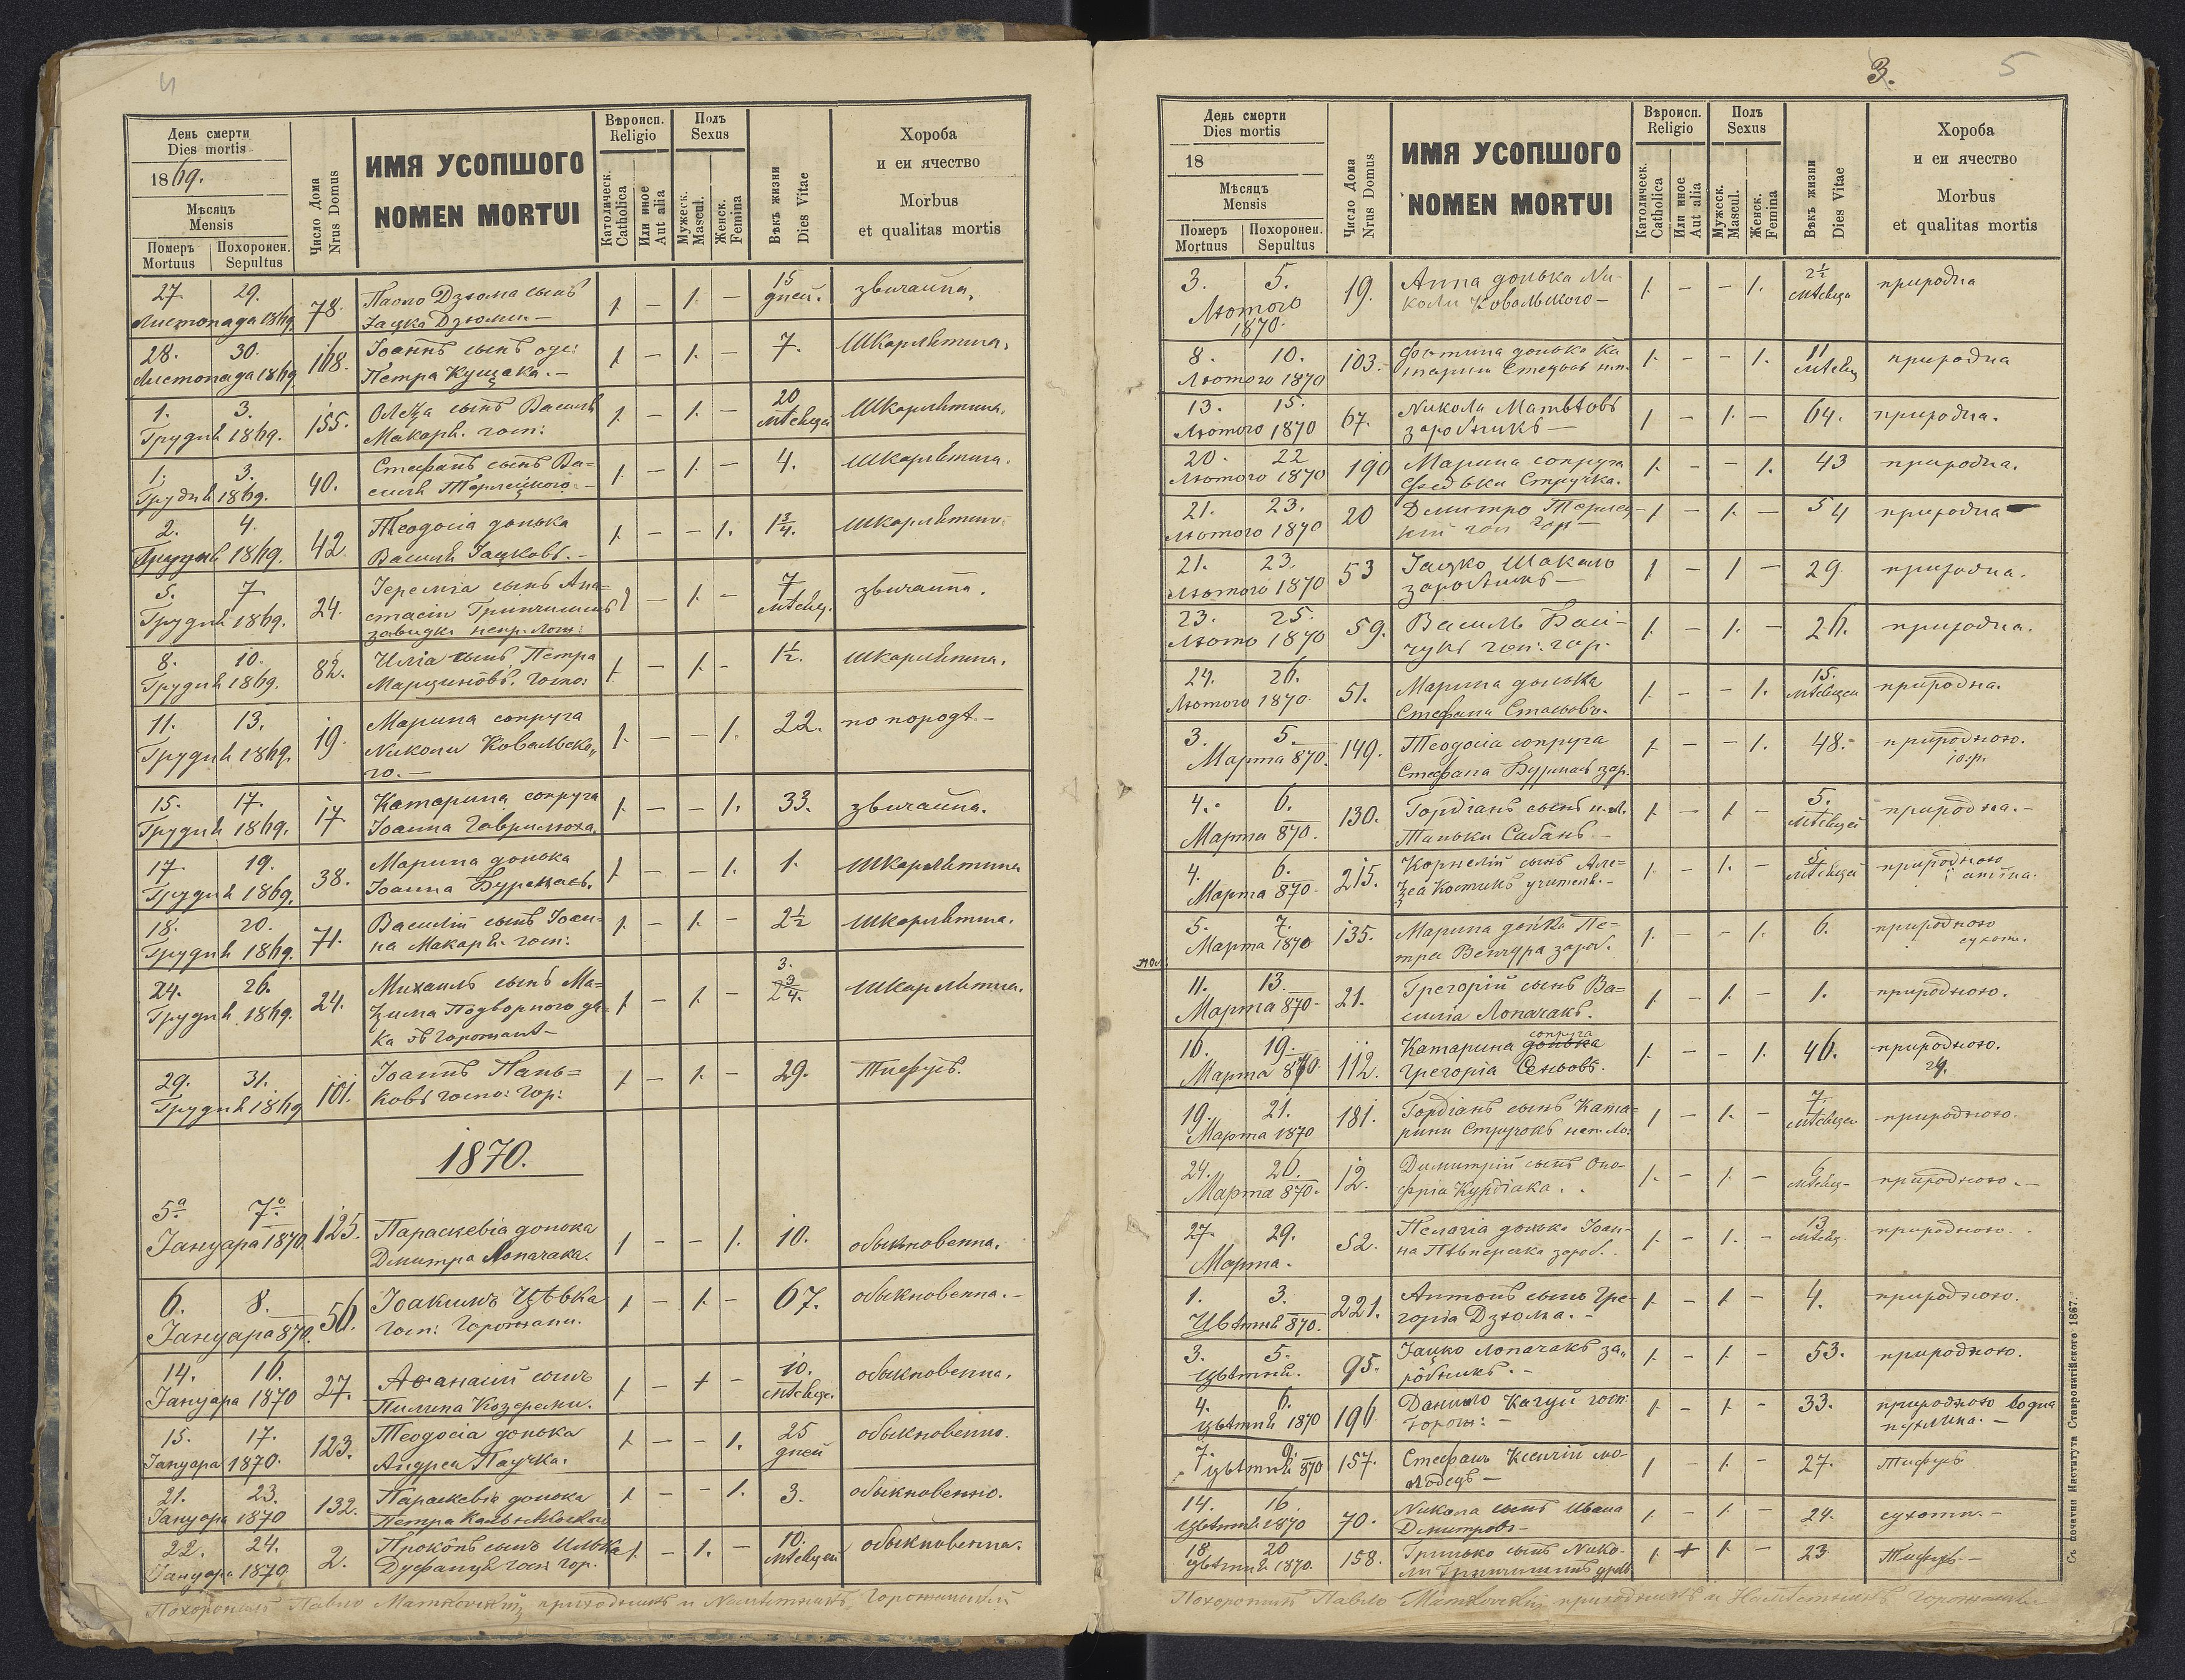 4
День смерти
Dies mortis
1869.
Мѣсяцъ
Mensis
Померъ Похоронен.
Mortuus Sepultus
Число Дома
Nrus Domus
ИМЯ УСОПШОГО
NOMEN MORTUI
Вѣроисп.
Religio
Католическ.
Catholica
Или иное
Aut alia
Полъ
Sexus
Мужеск.
Mascul.
Женск.
Femina
Вѣкъ жизни
Dies Vitae
Хороба
и еи ячество
Morbus
et qualitas mortis
27. 29. 78. Павло Дзюма сынъ 1. – 1. – 15 дней. звичайна.
Листопада 1869 Яцка Дзюми –
28. 30. 168. Іоаннъ сынъ 1. – 1. – 7. Шкарлѣтина.
Листопада 1869 Петра Кущака. –
1. 3. 155. Олеѯа сынъ Василѣ 1. – 1. – 20 мѣсяцей Шкарлѣтина.
Грудня 1869. Макарѣ. госп:
1. 3. 40. Стефанъ сынъ Ва= 1. – 1. – 4. Шкарлѣтина.
Грудня 1869. силя Терлецкого –
2. 4. 42 Теодосіа донька 1. – – 1. 1 3/4. Шкарлѣтина
Грудня 1869. Василѣ Яцковъ. –
5. 7. 24. Іеремїа сынъ Ана= 1 – 1. – 7 мѣсяц. звичайна.
Грудня 1869. стасіи
8. 10. 82. Иліа сынъ Петра 1. – 1. – 1 1/2. Шкарлѣтина.
Грудня 1869. Марциновъ. госпо:
11. 13. 19. Марина сопруга 1. – – 1. 22. по породѣ. –
Грудня 1869. Николи Ковальско„
го. –
15. 17. 17 Катарина сопруга 1. – – 1. 33. звичайна.
Грудня 1869. Іоанна Гаврилюха.
17. 19. 38. Марина донька 1. – – 1. 1. Шкарлѣтина
Грудня 1869. Іоанна
18. 20. 71. Василій сынъ Іоан= 1. – 1. – 2 1/2 Шкарлѣтина.
Грудня 1869. на Макарѣ. госп:
24. 26. 24. Михаилъ сынъ Ма= 1. – 1. – 3. Шкарлѣтина.
Грудня 1869. ѯима Подворного дя=
ка въ Горожанѣ –
29. 31. 101. Іоаннъ Пань= 1. – 1. – 29. Тифусъ.
Грудня 1869 ковъ госпо: Гор:
1870.
5а 7о 125. Параскевіа донька 1. – – 1. 10. обыкновенна.
Януара 1870. Дмитра Лопачака.
6. 8. 56. Іоакимъ Цѣвка 1. – 1. – 67. обыкновенна. –
Януара 870. госп: Горожани.
14. 16. 27. Аѳанасій сынъ 1. – 1 – 10. мѣсяце. обыкновенна.
Януара 1870 Пилипа
15. 17. 123. Теодосіа донька 1. – – 1. 25 дней обыкновенно.
Януара 1870. Андреа Паучка.
21. 23. 132. Параскевіа донька 1. – – 1. 3. обыкновенно.
Януара 1870 Петра
22. 24. 2. Прокопъ сынъ Илька 1. – 1. – 10. мѣсяцей обыкновенна.
Януара 1870. госп гор.
Похоронилъ Павло Матковскій приходникъ и Намѣстникъ Горожанскій
3.
5
День смерти
Dies mortis
18
Мѣсяцъ
Mensis
Померъ Похоронен.
Mortuus Sepultus
Число Дома
Nrus Domus
ИМЯ УСОПШОГО
NOMEN MORTUI
Вѣроисп.
Religio
Католическ.
Catholica
Или иное
Aut alia
Полъ
Sexus
Мужеск.
Mascul.
Женск.
Femina
Вѣкъ жизни
Dies Vitae
Хороба
и еи ячество
Morbus
et qualitas mortis
3. 5. 19. Анна донька Ни- 1. – – 1. 2 1/2 мѣсяца природна
Лютого коли Ковальского –
1870.
8. 10. 103. донька Ка 1. – – 1. 11 мѣсяц природна
Лютого 1870 тарини
13. 15. 67. Никола Матвѣовъ 1 – 1. – 64. природна.
Лютого 1870 заробникъ –
20. 22 190 Марина сопруга 1. – – 1. 43 природна.
Лютого 1870 Федька Стручка.
21. 23. 20 Демитро Терлец 1 – 1. – 54 природна
Лютого 1870 кій гоп гор –
21. 23. 53 Яцко Шакало 1 – 1 – 29. природна.
Лютого 1870 заробникъ –
23. 25. 59. Василь Бай- 1. – 1. – 26. природна.
Люто 1870 чукъ гоп: гор.
24. 26. 51. Марина донька 1. – – 1. 15. мѣсяцей природна.
Лютого 1870 Стефана
3. 5. 149. Теодосіа сопруга 1. – – 1. 48. – природною.
Марта 870. Стефана зар.
4. 6. 130. Гордіанъ сынъ н.л. 1. – 1 – 5. мѣсяцей природна. –
Марта 870. Таньки Сибань –
4. 6. 215. Корнелій сынъ Але= 1. – 1. – 5 мѣсяцей природною
Марта 870. ѯеа Костикъ учитель. – ангіна.
5. 7. 135. Марина донька Пе- 1. – – 1. 6. природною
Марта 1870 тра Венгура зароб. сухот.
11. 13. 21. Грегорій сынъ Ва= 1. – 1. – 1. природною.
Марта 870. силіа Лопачакъ.
16. 19. 112. Катарина сопруга 1. – – 1. 46. природною.
Марта 870. Грегоріа Сеньовъ.
19. 21. 181. Гордіанъ сынъ Ката= 1 – 1. – 7. мѣсяцей природною.
Марта 1870 рини Стручокъ неп ло:
24. 26. 12. Димитрій сынъ Оно- 1. – 1. – 6 мѣсяц – природною. –
Марта 870. фріа Курдіака.
27. 29. 52. Пелагіа донька Іоан- 1. – 1. – 13 мѣсяц. природною.
Марта. на зароб.
1. 3. 221. Антонъ сынъ Гре- 1. – 1 – 4. природною.
Цвѣтня 870. горіа Дзюма. –
3. 5. 95. Яцко Лопачакъ за„ 1. – 1 – 53. природною.
Цвѣтня. робникъ. –
4. 6. 196 Данило Качуй госп: 1. – 1 – 33. природною водна
Цвѣтня 1870 Горож: – пухлина. –
7. 9. 157. Стефанъ мо- 1 – 1. – 27. Тифусъ
Цвѣтня 870 лодецъ –
14. 16. 70. Никола сынъ Ивана 1. – 1. – 24. сухоти. –
Цвѣтня 1870 Дмитровъ –
18. 20 158. Гринько сынъ Нико- 1. + 1 – 23 Тифусъ –
Цвѣтня 1870. ли
Похоронилъ Павло Матковскій приходникъ и Намѣстникъ
Съ печатни Института Ставропигійского 1867.